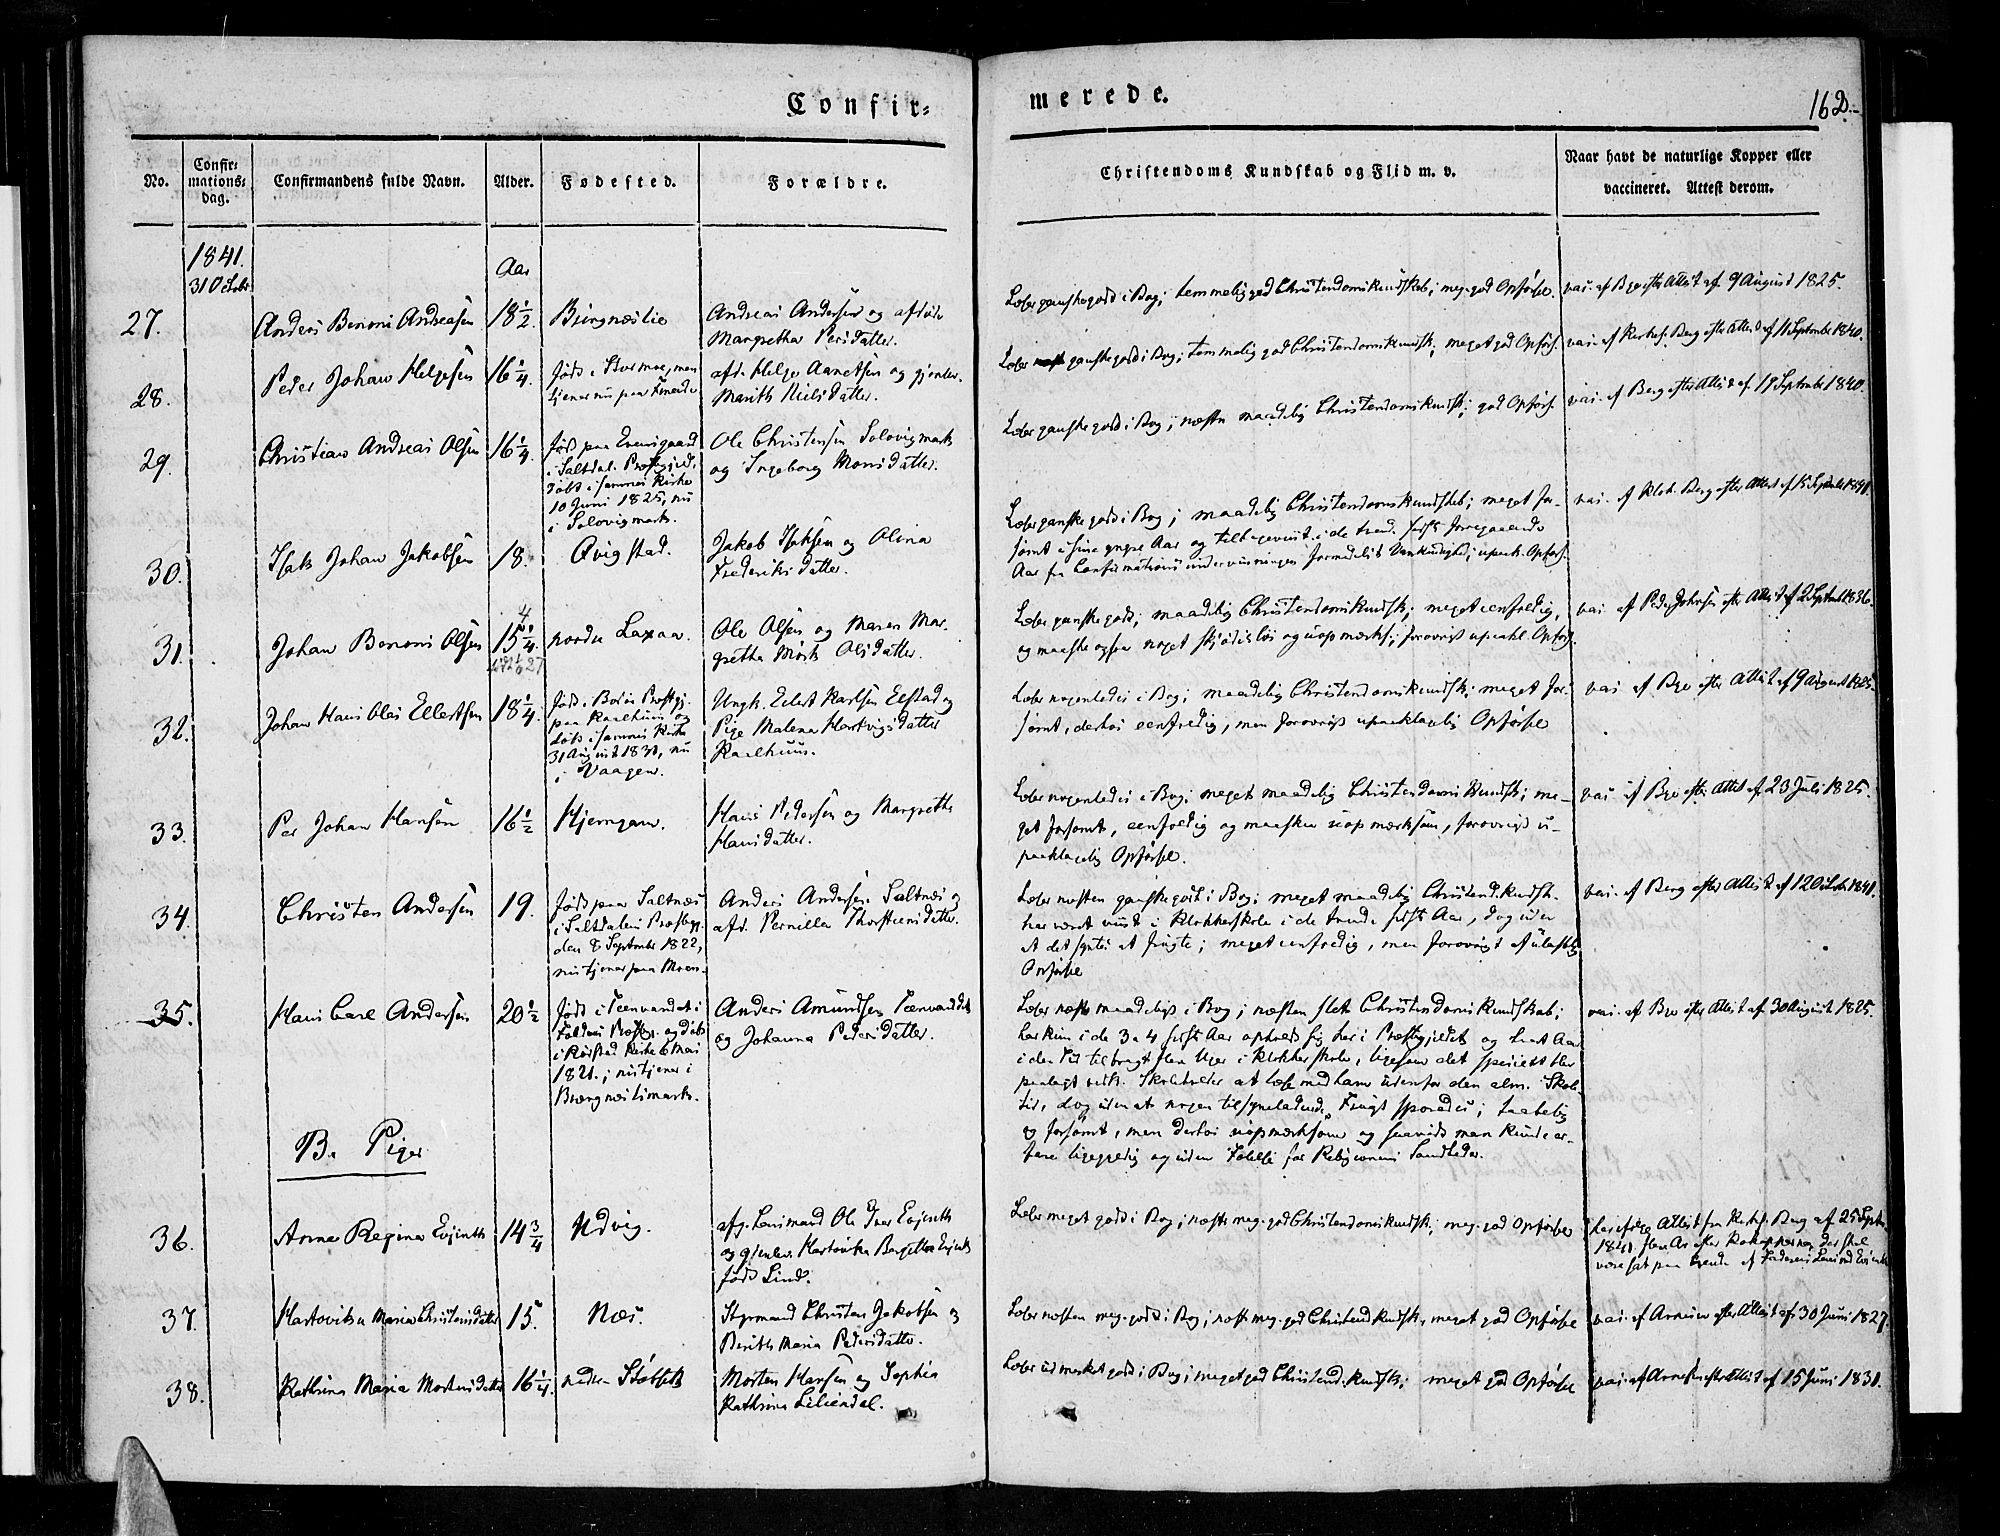 Confir=
merede.
162.
No.
Confir=
mations=
dag.
Confirmandens fulde Navn.
Alder.
Fødested.
Forældre.
Christendoms Kundskab og Flid m. v.
Naar havt de naturlige Kopper eller
vaccineret. Attest derom.
1841.
31 Octobr
Aar
27.
Anders Benoni Andreasen
18 1/2.
Andreas Andersen og afdøde
Margretha Persdatter.
Læser ganske godt i Bog; temmelig god Christendomskundskab; meg. god Opførsel.
vac. af Bye efter Attest af 9 August 1825.
28.
Peder Johan Helgesen
16 1/4.
født i Stormoe, men
tjener nu paa
afd. Helge og gjenlev.
Marith Nielsdatter.
Læser ganske godt i Bog; temmelig god Christendomskundsk; meget god Opførs.
vac. af Kirkes. Berg efter Attest af 11 Septembr 1840.
29.
Christian Andreas Olsen
16 1/4
født paa Evensgaard
i Saltdal. Præstegjeld,
døbt i sammes Kirke
10 Juni 1825, nu
i Solovigmark.
Ole Christensen Solovigmark
og Ingeborg Monsdatter.
Læser ganske godt i Bog; næsten maadelig Christendomskundsk; god Opførs.
vac. af Berg efter Attest af Septembr 1840.
30.
Isak Johan Jakobsen
18.
Qvigstad.
Jakob Isaksen og Olina
Frederiksdatter.
Læser ganske godt i Bog; maadelig Christendomskundskab; meget for-
sømt i sine yngre Aar og i de trende sidst foregaaende
Aar fra Confirmationsundervisningen formedelst Vankundighed; upaakl. Opførs.
vac. af Klok. Berg efter Attest af 15 Septembr 1841.
31.
Johan Benoni Olsen
15 1/4.
nordre Laxaa.
Ole Olsen og Maren Mar-
gretha Mørk Olsdatter.
Læser ganske godt; maadelig Christendomskundsk; meget eenfoldig,
og maaske ogsaa noget skjødesløs og uopmærks; forøvrigt upaakl. Opførs.
vac. af Peder Johnsen efter Attest af 2 Septembr 1836.
32.
Johan Hans Olai Ellertsen
18 1/4.
født i Bodøe Præstgj.
paa Kaalhuus og
døbt i sammes Kirke
31 August 1823, nu
i Vaagen.
Ungk. Eilert Karlsen Elstad og
Pige Malena Hartvigsdatter
Kaalhuus.
Læser nogenledes i Bog; maadelig Christendomskundsk; meget for-
sømt, derhos eenfoldig, men forøvrigt upaaklagelig Opførsel
vac. af Bye efter Attest af 9 August 1825.
33.
Per Johan Hansen
16 1/2
Hjemgam.
Hans Pedersen og Margretha
Hansdatter.
Læser nogenledes i Bog; meget maadelig Christendoms Kundsk; me-
get forsømt, eenfoldig og maaskee uopmærksom, forøvrigt u-
paaklagelig Opførsel.
vac. af Bye efter Attest af 23 Juli 1825.
34.
Christen Andersen
19.
født paa Saltnæs
i Saltdalens Præstegj.
den 8 Septembr 1822,
nu tjener paa Moen.
Anders Andersen Saltnæs og
afd. Pernilla Thorsteensdatter.
Læser næsten ganske godt i Bog; meget maadelig Christend.kundsk.
har været viist i Klokkerskole i de trende sidste Aar, dog uden
at det syntes at frugte; meget eenfoldig, men forøvrigt
Opførsel
vac. af Berg efter Attest af 12 Octobr 1841.
35.
Hans Carl Andersen
20 1/2
født i Teenvandet i
Foldens Præstegj. og døbt
i Rørstad Kirke 6 Mai
1821.; nu tjener i
Anders Amundsen Teenvandet
og Johanna Pedersdatter.
Læser maadeligt i Bog; næsten slet Christendomskundskab;
har kun i de 3 a 4 sidste Aar opholdt sig her i Præstegjeldet og hvert Aar
i den Tid tilbragt flere Uger i Klokkerskole, ligesom det specielt blev
paalagt Skoleholder at læse med ham udenfor den alm. Skole-
tid, dog uden at nogen tilsyneladende Frugt sporedes; taabelig
og forsømt, men derhos uopmærksom og saavidt man kunde er-
fare ligegyldig og uden Følelse for Religionens Sandheder.
vac. af Bye efter Attest af 30 August 1825.
B. Piger
36.
Anna Regina Evjenth
14 3/4
Udvig.
afg. Lensmand Ole Iver Evjenth
og gjenlev. Hartvikka Bergitta Evjenth
født Lind.
Læser meget godt i Bog; næsten meg. god Christendomskundsk; meg. god Opførsel
har ifølge Attest fra Kirkes. Berg af 25 Septr.
1841. flere Ar efter Kokopperne, der skal
være sat paa hende af Faderen Lensmd Evjenth
37.
Hartvikka Maria Christensdatter
15.
Næs.
Styrmand Christen Jakobsen og
Berith Maria Pedersdatter.
Læser næsten meg. godt i Bog; næsten meg. god Christend.kundsk; meget god Opførsel
vac. af Arnesen efter Attest af 30 Juni 1827.
38.
Kathrina Maria Mortensdatter
16 1/4.
Morten Hansen og Sophia
Kathrina Liliendal.
Læser udmærket godt i Bog; meget god Christend.kundsk; meget god Opførsel
vac. af Arnesen efter Attest af 15 Juni 1831.